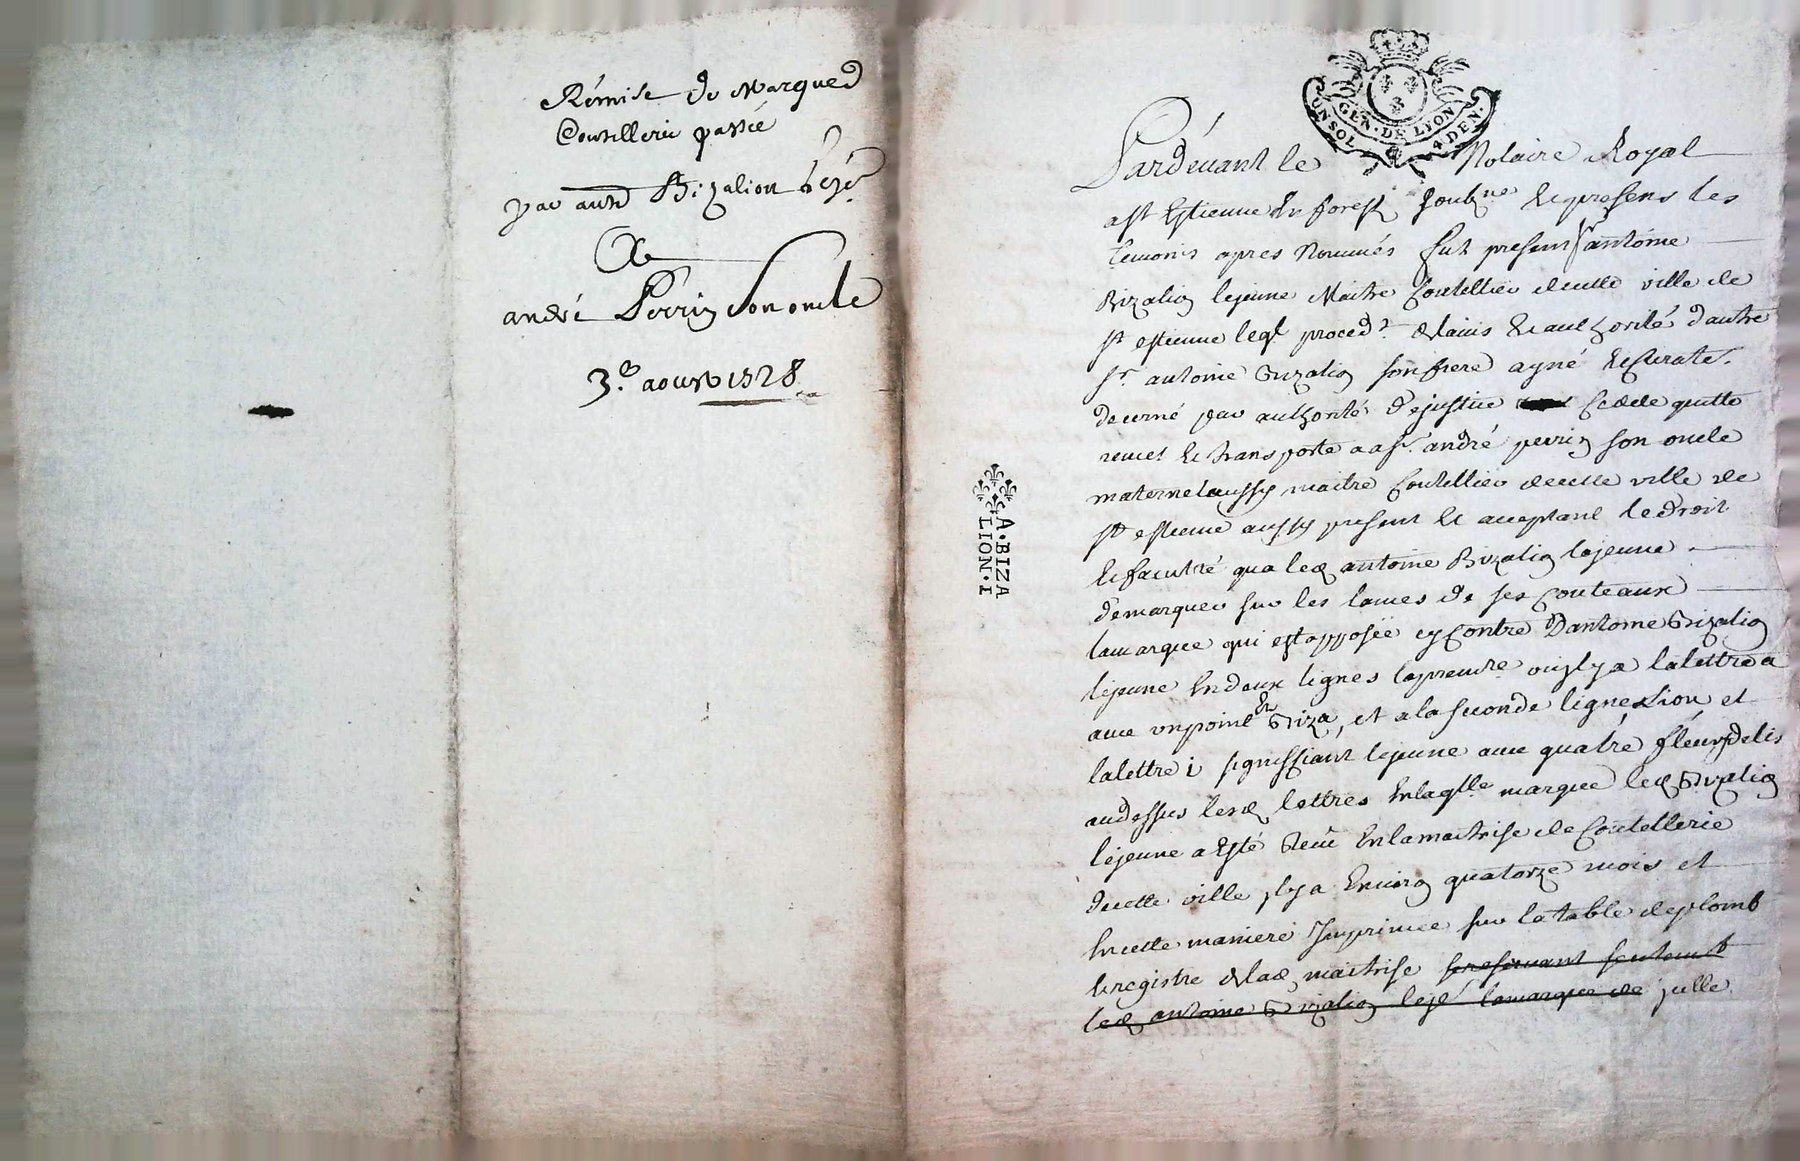 Rémise de marque
Coutellerie passée
par ant Bizalion
A
andré Perrin son oncle
3.e aoust 1728
GEN · DE LYON
4 DEN ·
Pardevant le Notaire Royal
a St Estienne en forest soubne et presens les
temoins apres Nommés fut present Sr antoine
Bizalion lejeune Maitre Coutellier de cette ville de
st estienne leql procedt de lavis et authorité dautre
sr. antoine Bizalion son frere ayné
decerné par authorité de justice cede quitte
remet et transporte a sr. andré perrin son oncle
maternel aussy maitre Coutellier de cette ville de
st estienne aussy present et acceptant le droit
et faculté qua led antoine Bizalion lejeune
demarquer sur les lames de ses Couteaux
lamarque qui est apposée cy contre Dantoine Bizalion
lejeune en deux lignes la premre ou il y a la lettre a
avec un point et Biza, et a la seconde ligne Lion et
la lettre i signiffiant lejeune avec quatre fleurs delis
audessus lesd lettres en laqlle marque led Bizalion
lejeune a Esté Receu en la maitrise de Coutellerie
de cette ville il y a Environ quatorze mois et
en cette maniere Imprimée sur la table de plomb
et registre de lad maitrise se reservant seulement
led antoine Bizalion leje lamarque de
A·BIZA
LION·I